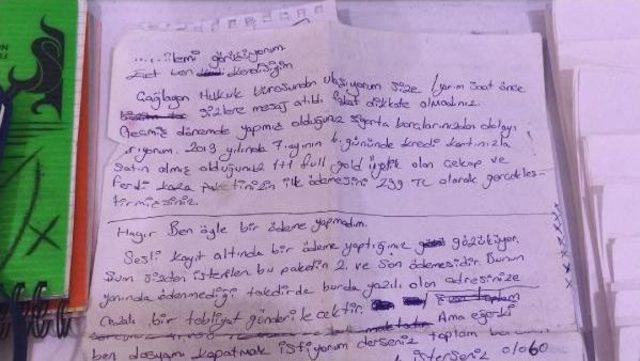 ......ilemi görüşüyorum
Evet ben kendisiyim
Çağlayan Hukuk Bürosundan ulaşıyorum size / yarım saat önce
sizlere mesaj atıldı fakat dikkate almadınız.
Geçmiş dönemde yapmış olduğunuz sigorta borçlarınızdan dolayı
arıyorum. 2013 yılında 7. ayının 1. gününde kredi kartınızla
satın almış olduğunuz 1+1 full gold üyelik olan çekap ve
ferdi kaza paketinizin ilk ödemesini 299 TL olarak gerçekleş-
tirmişsiniz.
Hayır Ben öyle bir ödeme yapmadım.
Sesli kayıt altında bir ödeme yaptığınız gözüküyor.
Bum sizden istenilen bu paketin 2. ve son ödemesidir. Bunun
yanında ödenmediği takdirde burda yazılı olan adresinize
cezalı bir tebliyat gönderilecektir. Ama eğerki
ben dosyamı kapatmak istiyorum derseniz toplam
isterseniz